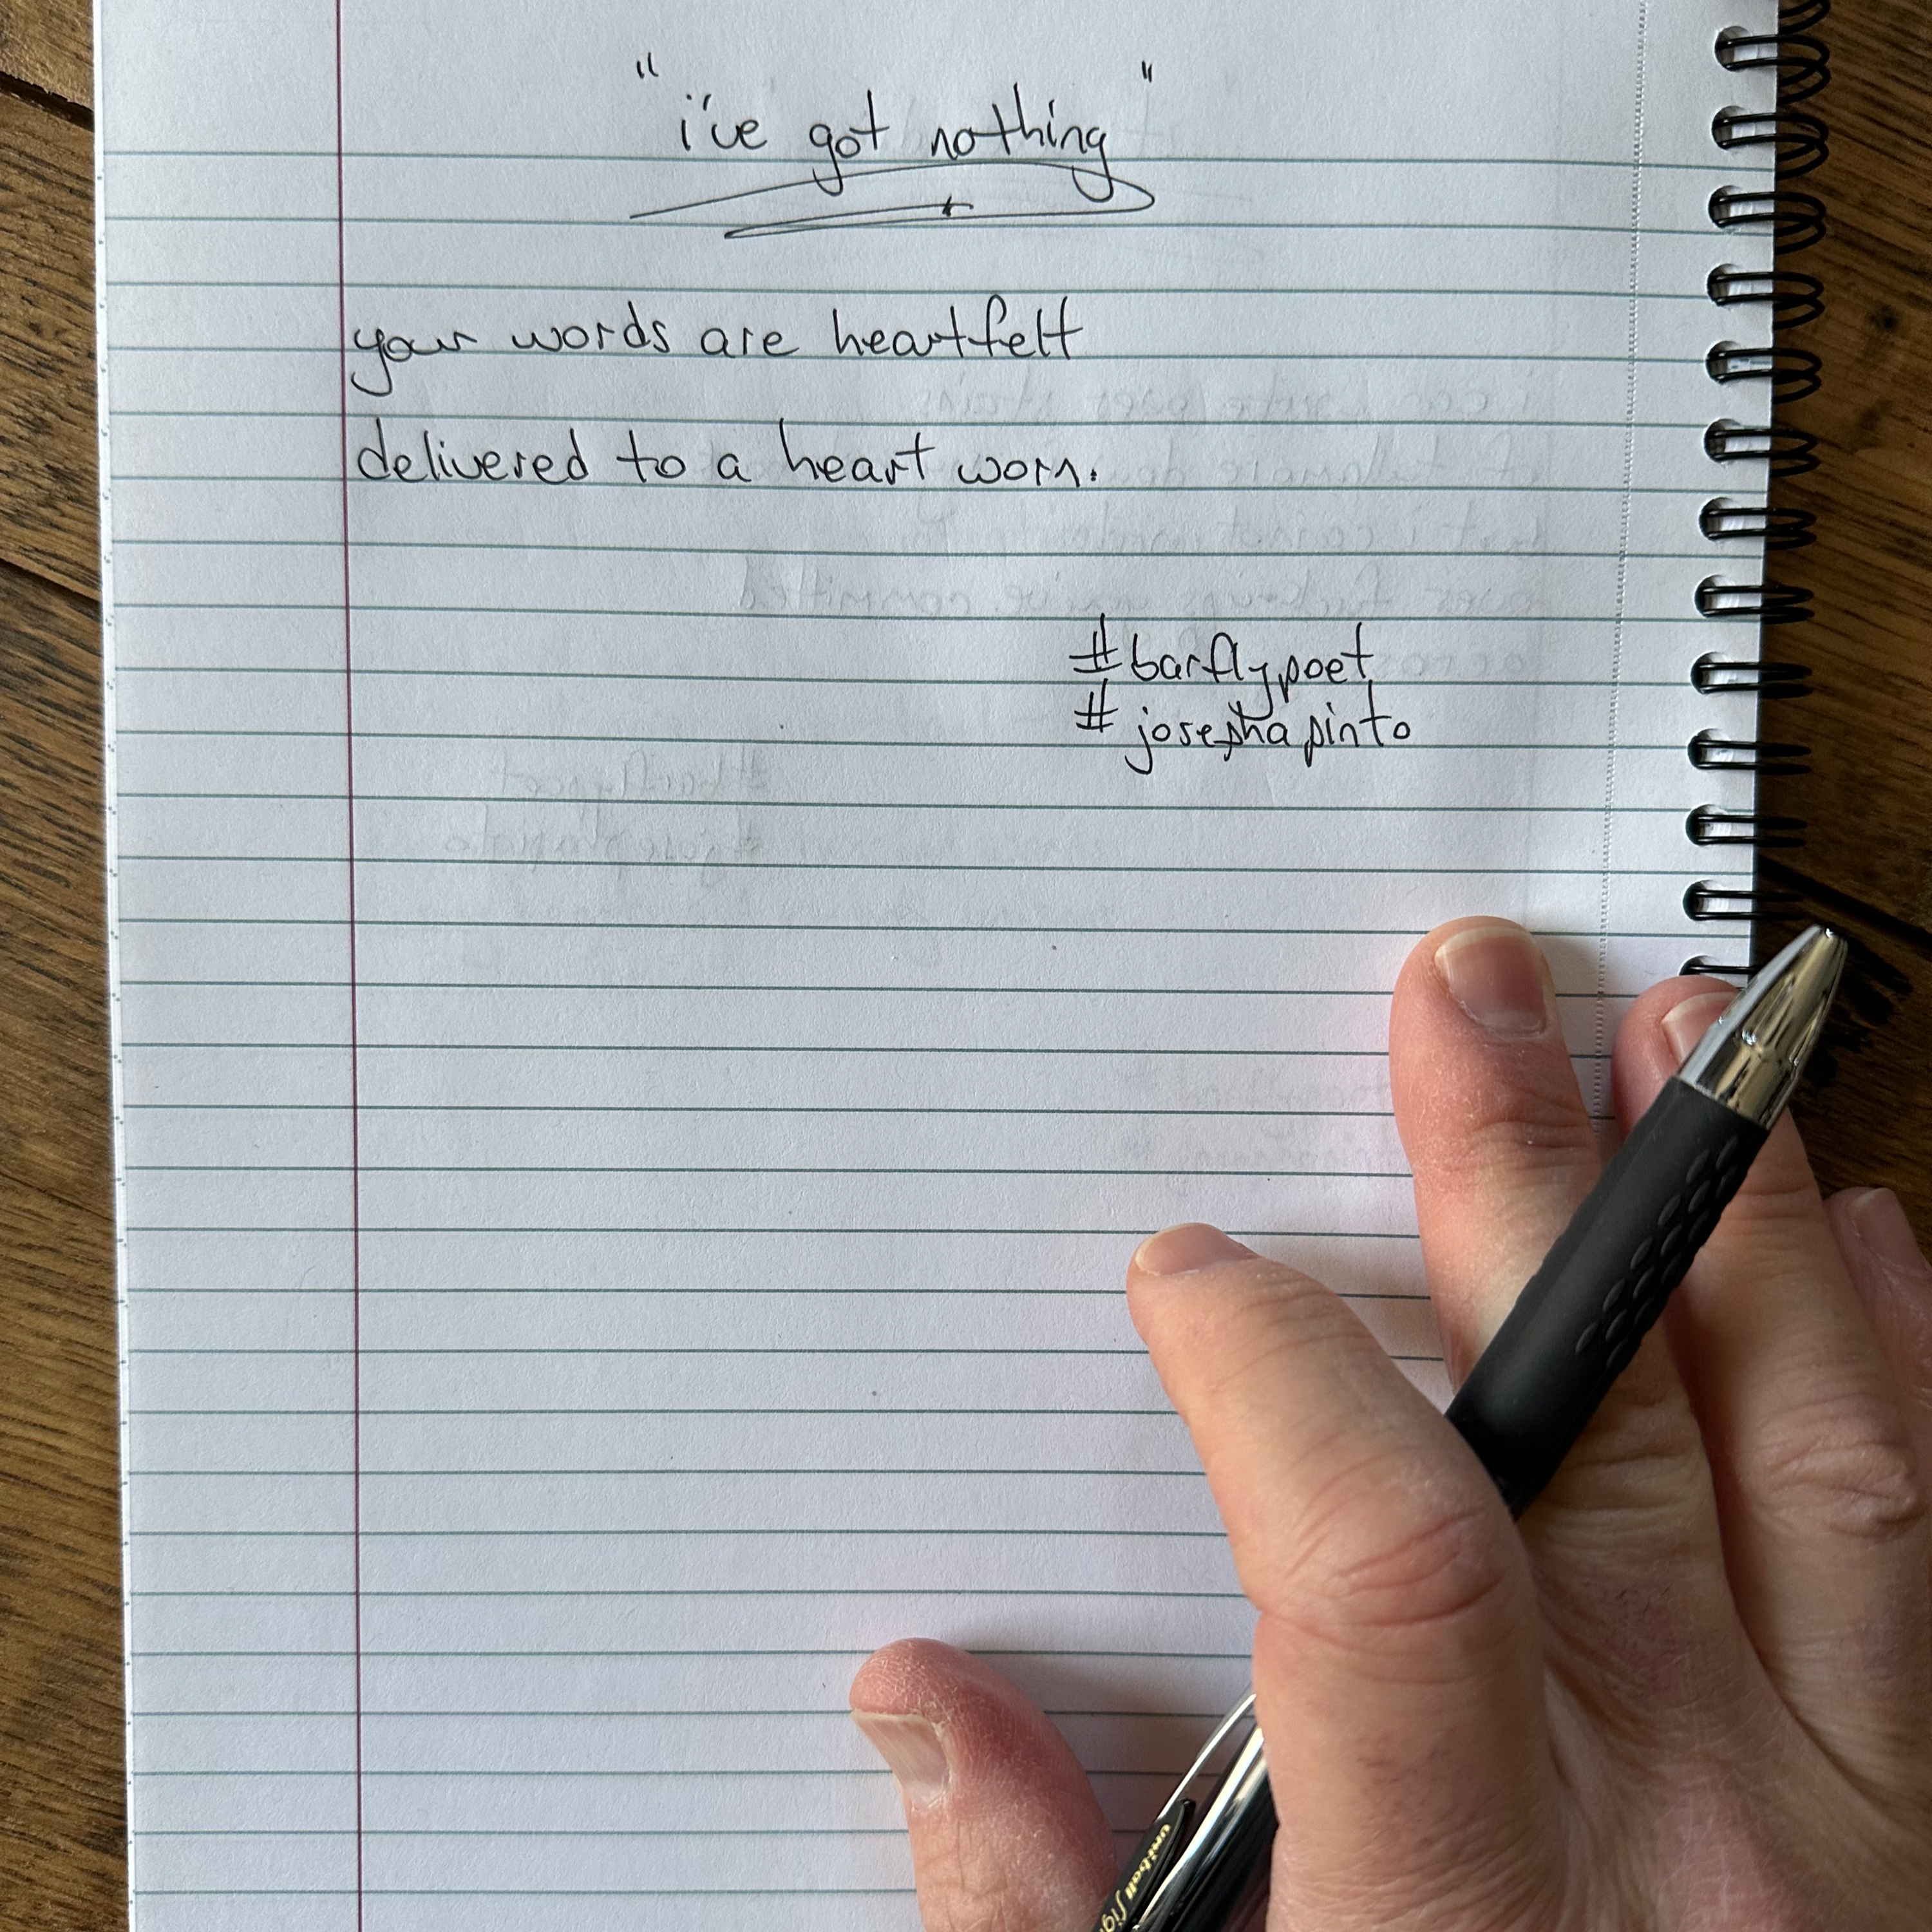 "i've got nothing"
your words are heartfelt
delivered to a heart worn.
#barflypoet
#josephapinto
uniball